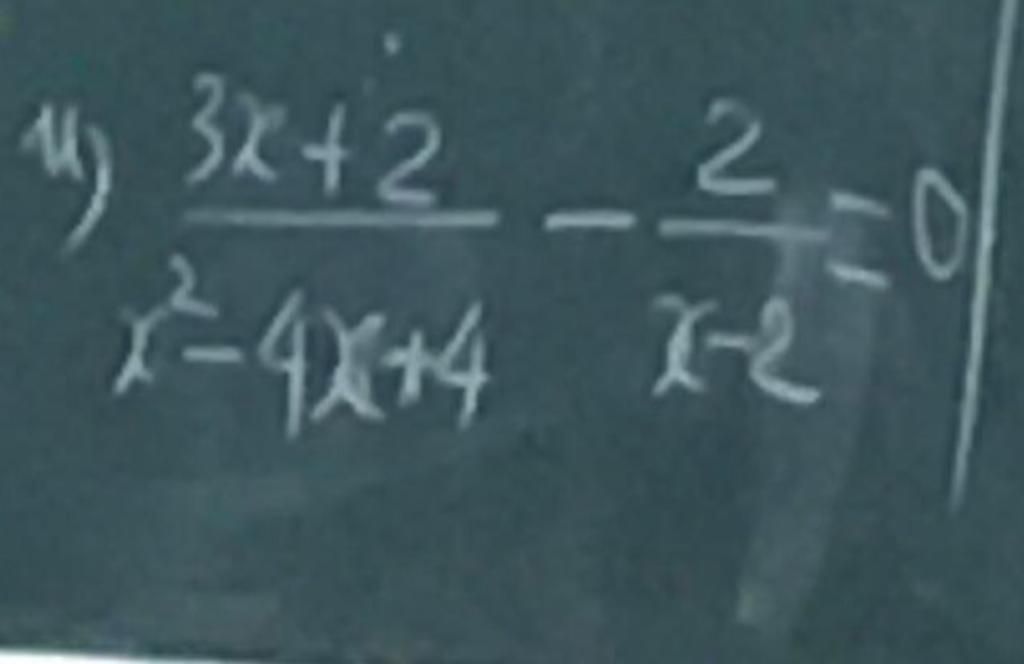 u) \frac{3x+2}{x^2-4x+4} - \frac{2}{x-2} = 0